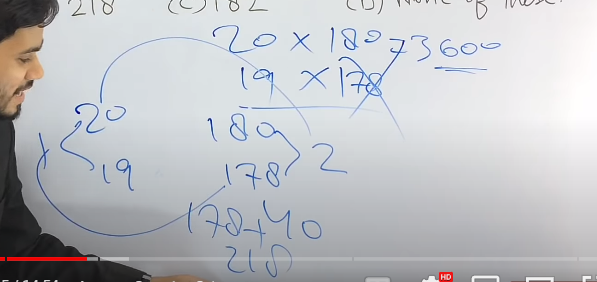 218 (C) 182 (D) None of these
20 × 180 = 3600
19 × 178
20 180
19 178 2
178+40
218
HD